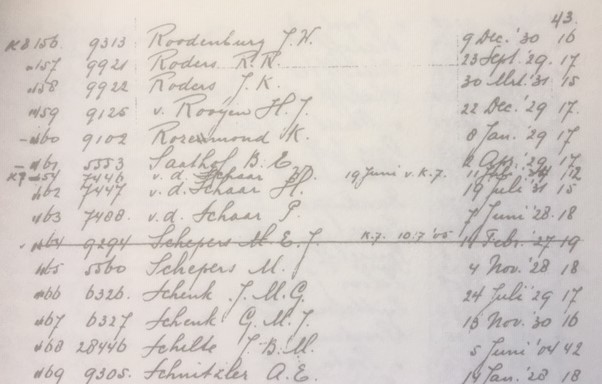 43.
KB 156 9313 Roodenburg J. W. 9 Dec. '30 16
" 157 9921 Roders R. R. 23 Sept. '29. 17
" 158 9922 Roders J. K. 30 Mrt. '31 15
" 159 9125 v. Rooyen H. J. 22 Dec. '29 17.
" 160 9102 Rozenmond K. 8 Jan. '29 17
" 161 5553 Saathof B. E. 2 Apr. '29 17
7446 v. d. Schaar 19 Juni v. K. 7. 12
" 162 7447 v. d. Schaar H. 19 Juli '31 15
" 163 7488. v. d. Schaar P. 7 Juni '28. 18
" 164 9294 Schepers M. E. J. K. 7. 10.7 '45 Febr. '27 19
" 165 5560 Schepers M. 4 Nov. '28 18
" 166 6326. Schenk J. M. G. 24 Juli '29 17
" 167 6327 Schenk G. M. J. 15 Nov. '30 16
" 168 28446 Schilte J. B. M. 5 Juni '04 42
" 169 9305. Schnitzler A. E. 14 Jan. '28 18